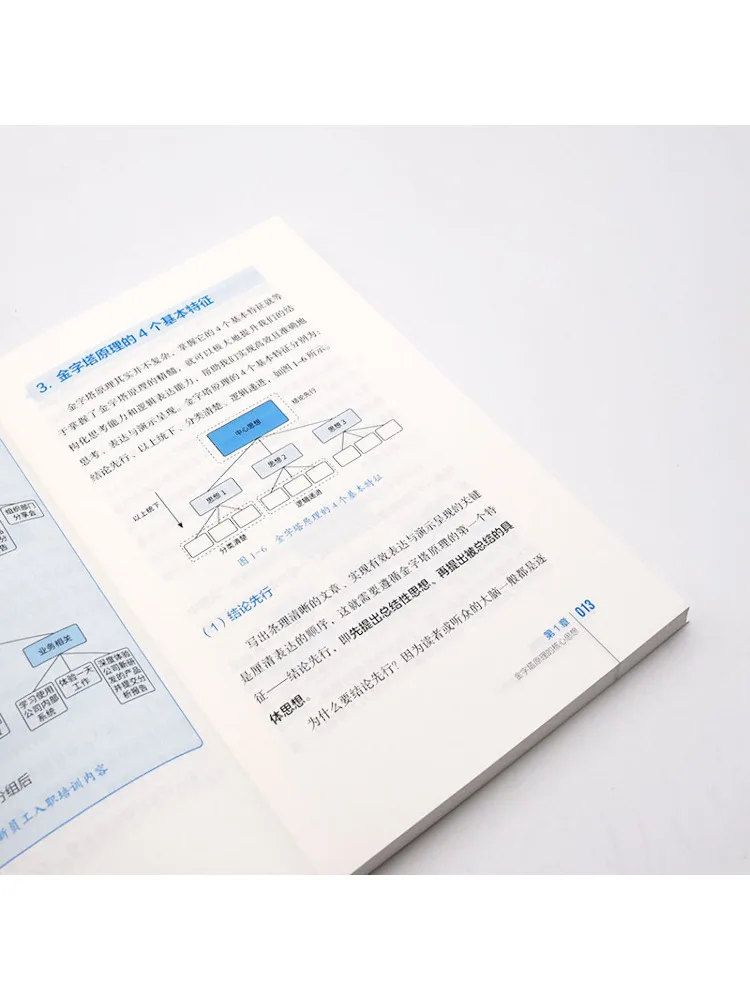 组织部门
分享会
告
业务相关
学习使用
公司内部
系统
体验一天
工作
深度体验
公司新研
发的产品
并提交分
析报告
分组后
新员工入职培训内容
3. 金字塔原理的 4 个基本特征
金字塔原理其实并不复杂，掌握它的 4 个基本特征就等
于掌握了金字塔原理的精髓，就可以极大地提升我们的结
构化思考能力和逻辑表达能力，帮助我们实现高效且准确地
思考、表达与演示呈现。金字塔原理的 4 个基本特征分别为：
结论先行、以上统下、分类清楚、逻辑递进，如图 1-6 所示。
结论先行
中心思想
思想 1
思想 2
思想 3
以上统下
分类清楚
逻辑递进
图 1-6 金字塔原理的 4 个基本特征
（1）结论先行
写出条理清晰的文章、实现有效表达与演示呈现的关键
是厘清表达的顺序，这就需要遵循金字塔原理的第一个特
征——结论先行，即先提出总结性思想、再提出被总结的具
体思想。
为什么要结论先行？因为读者或听众的大脑一般都是逐
第 1 章
金字塔原理的核心思想
013